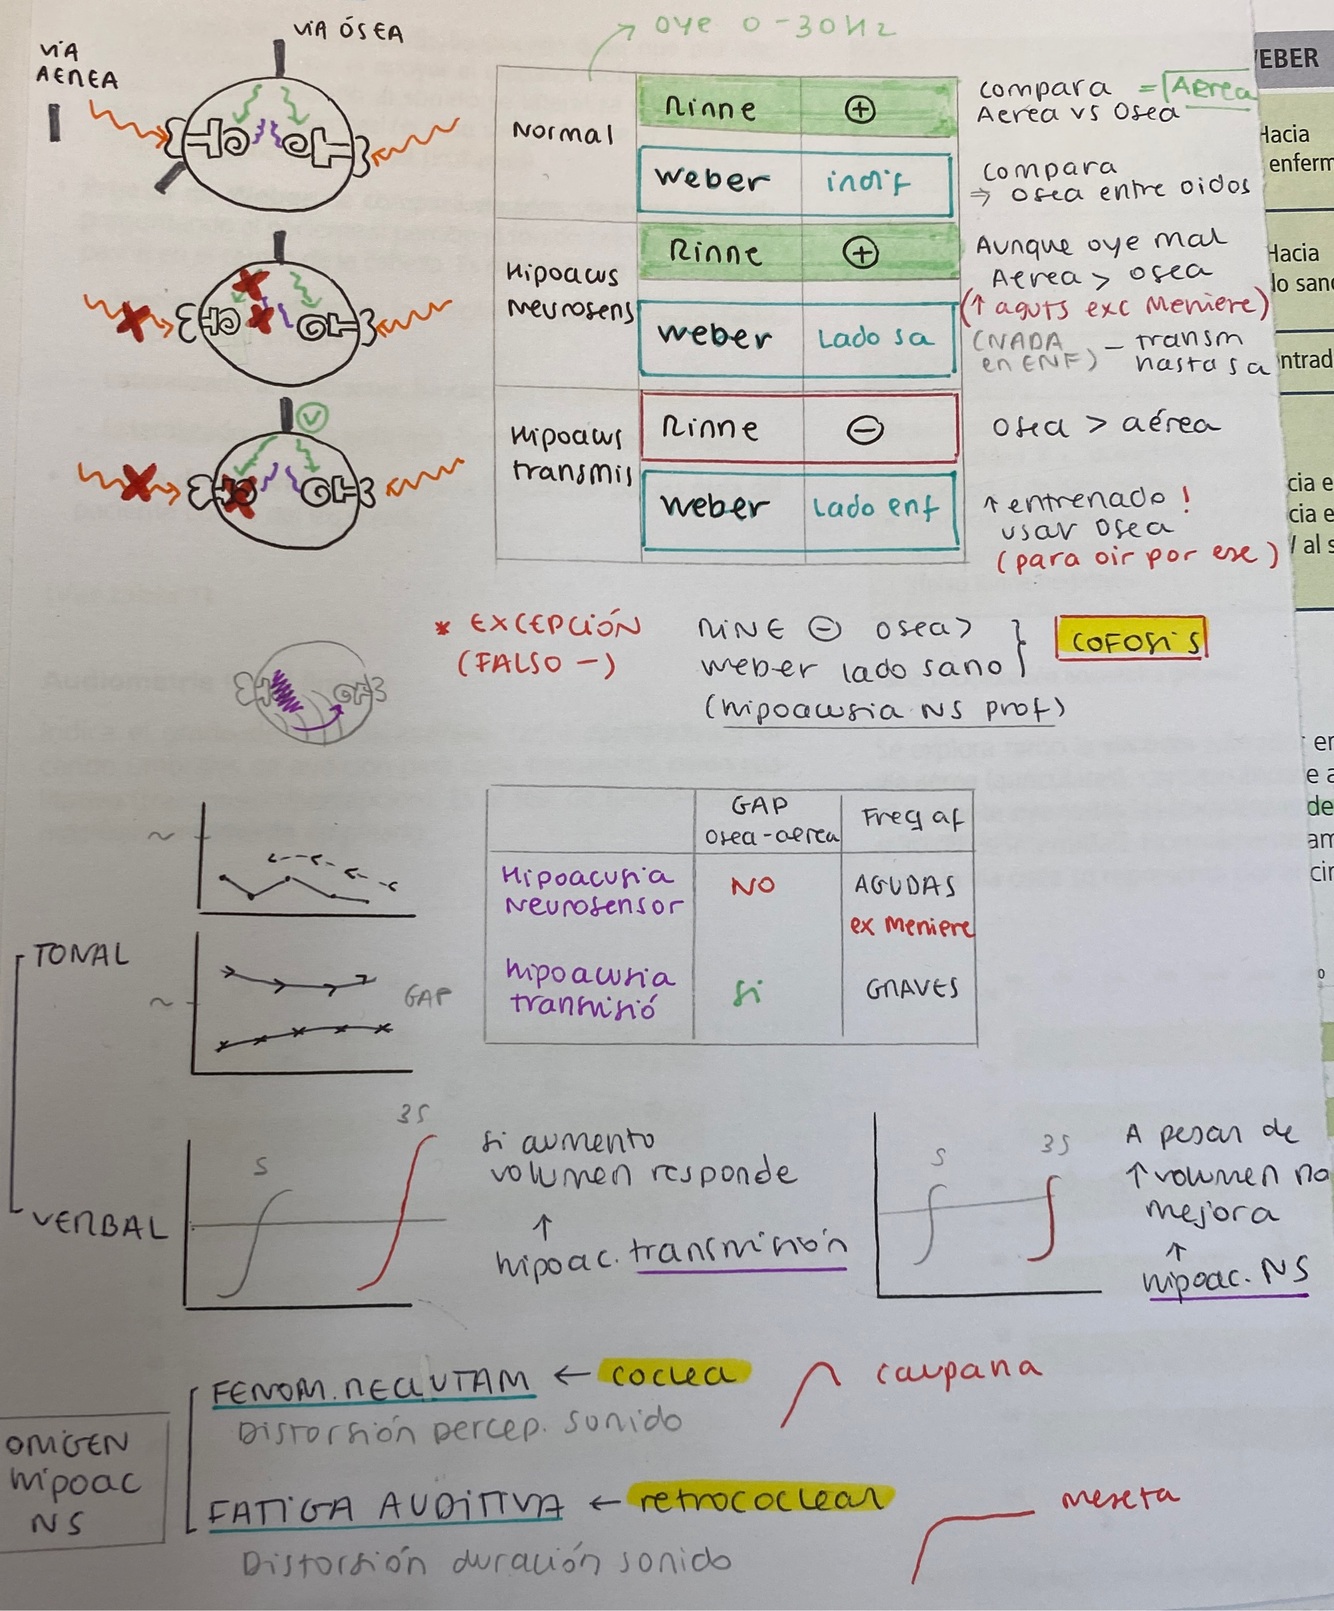 VÍA ÓSEA
VÍA
AEREA
oye 0-30Hz
Normal
Rinne +
compara = Aerea
Aerea vs Osea
weber indif
compara
⇒ osea entre oidos
Hipoacus
Neurosens
Rinne +
Aunque oye mal
Aerea > osea
(↑ aguts exc Meniere)
weber Lado sa
(NADA en ENF) - transm
hasta sa
Hipoacus
transmis
Rinne -
osea > aérea
weber Lado enf
↑ entrenado !
usar osea
(para oir por ese)
EBER
Hacia
enferm
Hacia
lo sano
ntrad
cia e
cia e
al s
* EXCEPCIÓN
(FALSO -)
RINE - osea>
weber lado sano
(hipoacusia NS prof)
COFOSIS
er
e a
de
am
cir
GAP
osea-aerea
Freq af
Hipoacusia
Neurosensor
NO
AGUDAS
ex Meniere
hipoacusia
transmisió
Si
GRAVES
TONAL
GAP
VERBAL
S
3S
si aumento
volumen responde
↑
hipoac. transmisión
S
3S
A pesar de
↑ volumen no
mejora
↑
hipoac. NS
ORIGEN
hipoac
NS
FENOM. RECLUTAM ← coclea
Distorsión percep. sonido
campana
FATIGA AUDITIVA ← retrococlear
Distorsión duración sonido
meseta